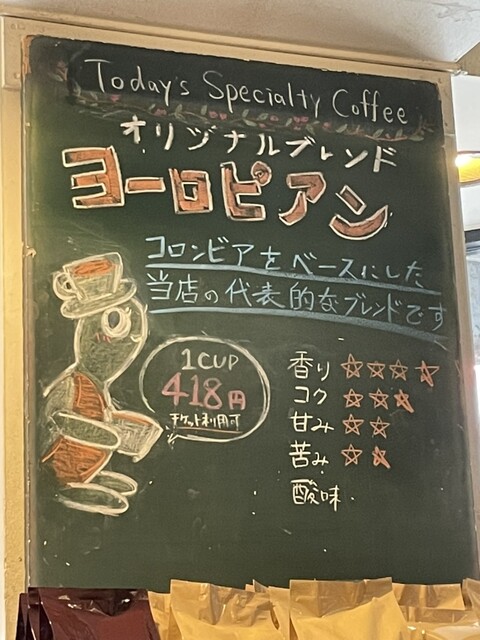 Today's Specialty Coffee
オリジナルブレンド
ヨーロピアン
コロンビアをベースにした
当店の代表的なブレンドです
1CUP
418円
チケット利用可
香り ☆☆☆☆
コク ☆☆☆
甘み ☆☆
苦み ☆☆
酸味